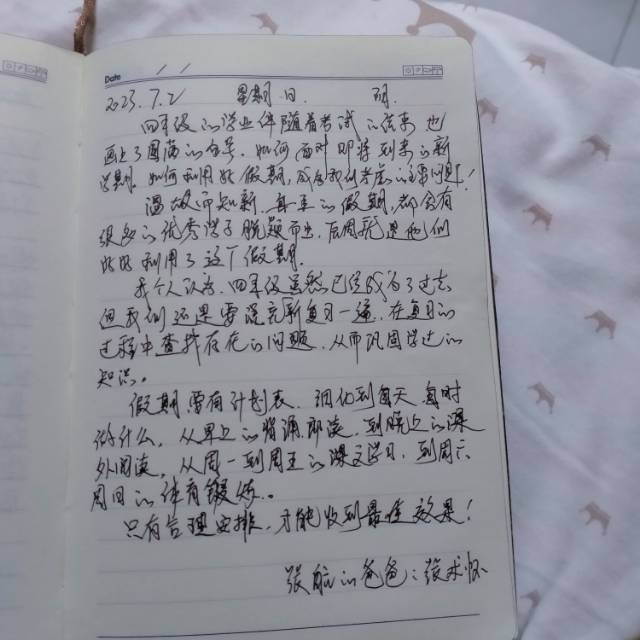 Date / /
2023.7.2 星期日. 晴.
四年级的学业伴随着考试的结束也
画上了圆满的句号. 如何面对即将到来的新
学期. 如何利用好假期, 成为我们考虑的主要问题!
温故而知新. 每年的假期, 都会有
很多的优秀学子脱颖而出. 原因就是他们
好好利用了这个假期.
我个人认为. 四年级虽然已经成为了过去
但我们还是要温充新复习一遍. 在复习的
过程中查找存在的问题. 从而巩固学过的
知识。
假期要有计划表. 细化到每天 每时
做什么. 从早上的背诵朗读. 到晚上的课
外阅读. 从周一到周五的课文学习. 到周六
周日的体育锻炼.
只有合理安排. 才能收到最佳效果!
张航的爸爸: 张求怀